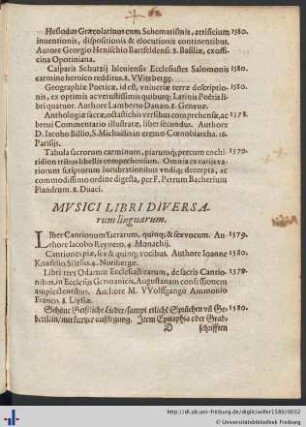 Hesiodus Græcolatinus cum Schematismis, artificium 1580.
inuentionis, dispositionis & elocutionis continentibus.
Autore Georgio Henischio Bartfeldensi. 8. Basileæ, ex offi-
cina Oporiniana.
Casparis Schutzij Isleniensis Ecclesiastes Salomonis 1580.
carmine heroico redditus. 8. VVitebergæ.
Geographiæ Poeticæ, id est, vniuersæ terræ descriptio- 1580.
nis, ex optimis ac vetustissimis quibusq; Latinis Poëtis li-
bri quatuor. Authore Lamberto Danæo. 8. Geneuæ.
Anthologiæ sacræ, octastichis versibus comprehensæ, ac 1578.
breui Commentario illustratæ, liber secundus. Authore
D. Jacobo Billio, S. Michaëlis in eremo Cœnobiarcha. 16.
Parisijs.
Tabula sacrorum carminum, piarumq; precum enchi- 1579.
ridion tribus libellis comprehensum. Omnia ex varijs va-
riorum scriptorum lucubrationibus vndiq; decerpta, ac
commodissimo ordine digesta, per F. Petrum Bacherium
Flandrum. 8. Duaci.
MVSICI LIBRI DIVERSA-
rum linguarum.
LIber Cantionum sacrarum, quinq; & sex vocum. Au- 1579.
thore Iacobo Reynero. 4. Monachij.
Cantiones piæ, sex & quinq; vocibus. Authore Ioanne 1580.
Knœfelio Silesio. 4. Noribergæ.
Libri tres Odarum Ecclesiasticarum, de sacris Cantio- 1579.
nibus, in Ecclesijs Germanicis, Augustanam confessionem
amplectentibus. Authore M. VVolffgango Ammonio
Franco. 8. Lipsiæ.
Schöne Geistliche Lieder / sampt etlichē Sprüchen vñ Ge- 1580.
betlein / mit kurtzer außlegung. Item Epitaphia oder Grab-
D schrifften
http://dl.ub.uni-freiburg.de/diglit/willer1580/0032
© Universitätsbibliothek Freiburg